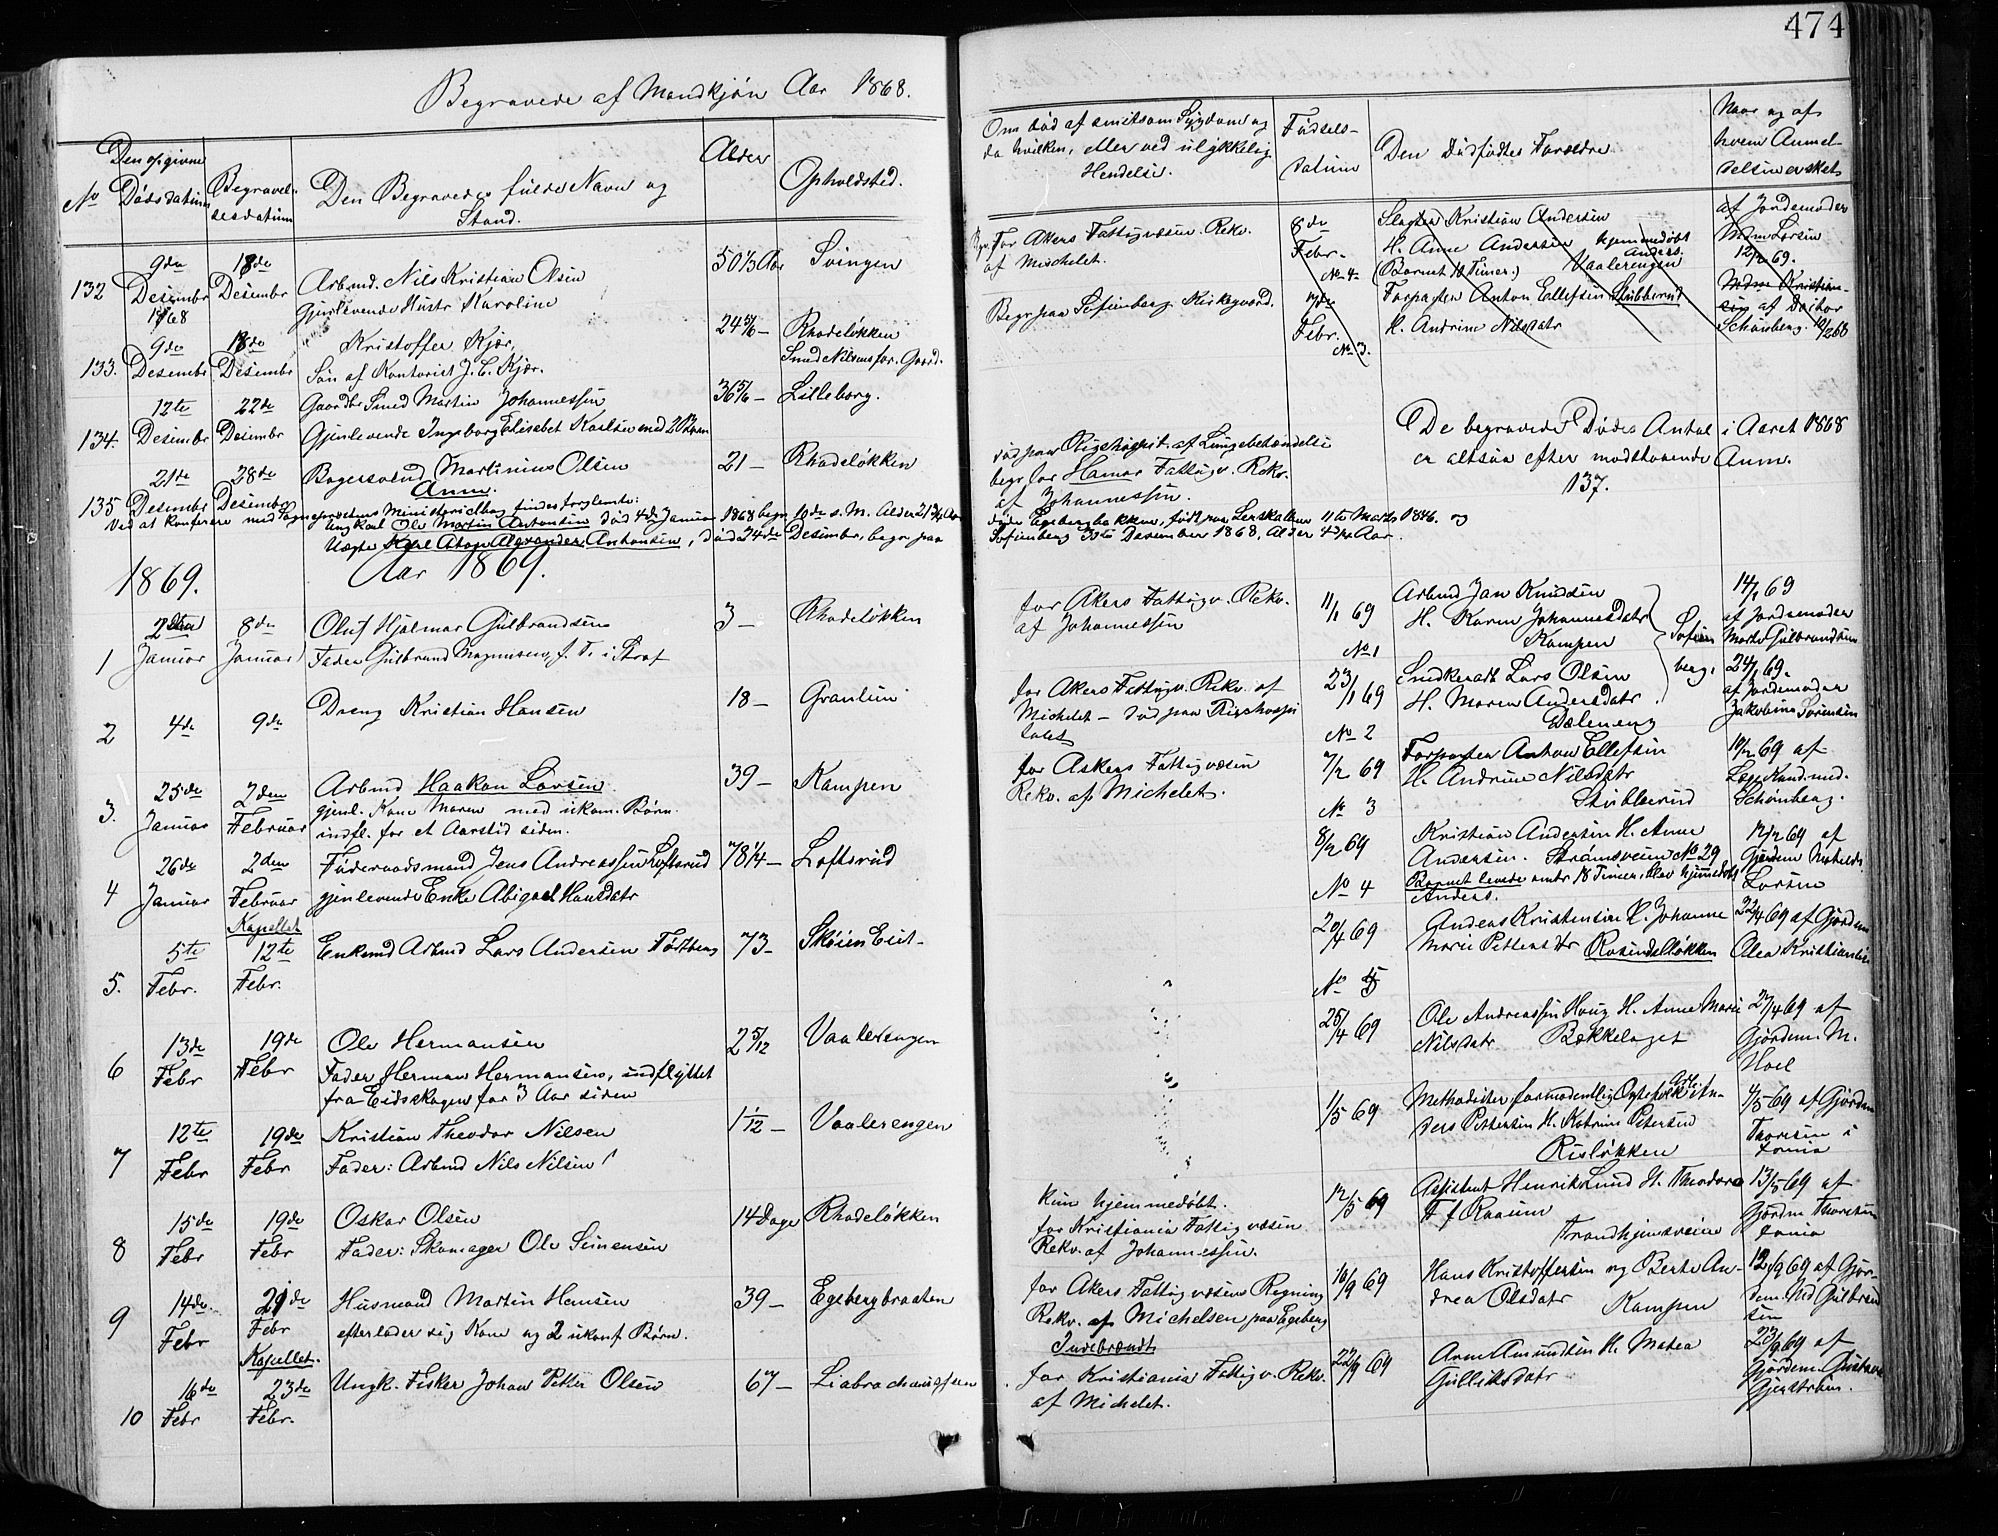 474
Begravede af Mandkjøn Aar 1868.
No
Den opgivne Dødsdatum
Begravelsesdatum
Den Begravedes fulde Navn og
Stand.
Alder
Opholdsted.
132
9de Desember 1868
18de Desember
Arbmd. Nils Kristian Olsen
Gjenlevende Hustr Karoline
50 1/3 Aar
Svingen
133.
9de Desembr
18de Desembr
Kristoffer Kjær,
Søn af Kontorist J. C. Kjær.
24 5/6 —
Rhodeløkken
Smed Nilsens for. Gaard.
134.
12te Desembr
22de Desembr
Gaardbr Smed Martin Johannessen
Gjenlevende Ingeborg Elisabet Karlsen med 2 Børn
36 5/6 —
Lilleborg.
135
21de Desembr
28de Desembr
Bagersvend Martinius Olsen
21 —
Rhodeløkken
Anm.
Ved at konferere med Sogneprestens Ministerialbog findes forglemte:
Ungkarl Ole Martin Antonsen død 4de Januar 1868 begr. 10de s. M. Alder 21
Uægte Karl Alexander Antonsen, død 24de Desember, begr. paa
1869.
Aar 1869.
1
2den Januar
8de Januar
Oluf Hjalmar Gulbrandsen
Fader Gulbrand Magnussen, f. T. i Straf
3 —
Rhodeløkken
2
4de
9de
Dreng Kristian Hansen
18 —
Granlund
3.
25de Januar
2den Februar
Arbmd Haakon Larsen
gjenl. Kone Maren med ukonf. Børn
indfl. for et Aarstid siden.
39 —
Kampen
4
26de Januar
2den Februar
Føderaadsmand Jens Andreassen Loftsrud
gjenlevende Enke Abigael Hansdatr
78 1/4 —
Loftsrud
Kapellet
5.
5te Febr.
12te Febr.
Enkemd Arbmd Lars Andersen
73 —
Skøien Eiet.
6
13de Febr
19de Febr
Ole Hermansen
Fader Herman Hermansen, indflyttet
fra Eidsskogen for 3 Aar siden
2 5/12
Vaalerengen
7
12te Febr
19de Febr
Kristian Theodor Nilsen
Fader: Arbmd Nils Nilsen
1 1/12 —
Vaalerengen
8
15de Febr
19de Febr
Oskar Olsen
Fader: Skomager Ole Simensen
14 Dage
Rhodeløkken
9
14de Febr
21de Febr
Husmand Martin Hansen
efterlader sig Kone og 2 ukonf. Børn.
39 —
Egebergbraaten
Kapellet.
10
16de Febr
23de Febr.
Ungk. Fisker Johan Petter Olsen
67 —
Om død af smitsom Sygdom og
da hvilken, eller ved ulykkelig
Hendelse.
Fødsels-
datum
Den Dødfødtes Forældre
Naar og af
hvem Anmel-
delsen er sket
Begr. for Akers Fattigvæsen. Rekv.
af Michelet.
8de Febr. No 4
Slagter Kristian Andersen
H. Anne Andersen hjemmedøbt Anders.
(Barnet 18 Timer.) Vaalerengen
af Jordemoder
Mdm Larsen
12/2 69.
Begr. paa Sofienberg Kirkegaard.
7de Febr. No 3.
Forpagter Anton Ellefsen Stubberud
H. Andrine Nilsdatr
Mdm Kristian-
sen af Doktor
Schønberg.
død paa Rigshospit. af Lungebetændelse
begr. for Hamar Fattigv. Rekv.
af Johannessen.
De begravede Dødes Antal i Aaret 1868
er altsaa efter modstaaende Anm.
137.
døde Egebergbakken, født paa Lerskallen 11te Marts 1846. og
Sofienberg 30te Desember 1868, Alder Aar.
for Akers Fattigv. Rekv.
af Johannessen
11/1 69
No 1
Arbmd Jan Knudsen
H. Karen Johannesdatr
Kampen
Sofien
berg.
14/1 69
af Jordemoder
Marte Gulbrandsen
for Akers Fattigv. Rekv. af
Michelet — død paa Rigshospi
talet
23/1 69
No 2
Smedkarl Lars Olsen
H. Maren Andersdatr
Dæleneng
24/1 69.
af Jordemoder
Jakobine Sørensen
for Askers Fattigvæsen
Rekv. af Michelet.
7/2 69
No 3
Forpagter Anton Ellefsen
H. Andrine Nilsdatr
Stubberud
10/2 69 af
Læge Kand. med.
Schønberg.
8/2 69
No 4
Kristian Andersen H. Anne
Andersen. Strømsveien No 29
Barnet levede omtr. 18 Timer, blev hjemmedøbt
Anders.
12/2 69 af
Gjordem Matelde
Larsen
20/4 69
No 5
Andeas Kristensen H. Johanne
Marie Pettersdtr Rosendalløkken
22/4 69 af Gjordem
Olea Kristiansen
25/4 69
Ole Andreassen Haug H. Anne Marie
Nilsdatr Bækkelaget
27/4 69 af
Gjordem. M.
Hoel
1/5 69
Methodister formodentlig
Anders Pettersen H. Katrine Petersen
Risløkken
4/5 69 af Gjordem
Thoresen i
Kun hjemmedøbt.
for Kristiania Fattigvæsen
Rekv. af Johannessen.
12/5 69
Assistent Henrik Lund H. Theodora
Trondhjemsveien
13/5 69 af
Gjordm Thoresen
for Akers Fattigvæsens Regning
Rekv. af Michelsen paa Egeberg
Indebrændt
10/9 69
Hans Kristoffersen og Berte An-
drea Olsdatr Kampen
12/9 69 af Gjor-
dem. Gulbrand
sen
for Kristiania Fattigv. Rekv.
af Michelet.
22/9 69
Arne Amundsen H. Matea
Gulliksdatr
23/9 69 af
Gjordem. Gustava